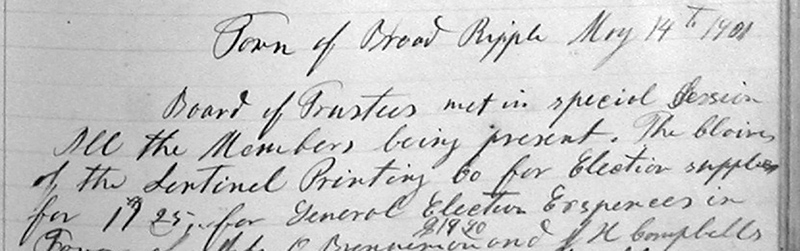 Town of Broad Ripple May 14th 1901
Board of Trustees met in special Session
All the Members being present. The claims
of the Sentinel Printing Co for Election supplies
for 25. for General Election Expences in
Town of and J H Campbells